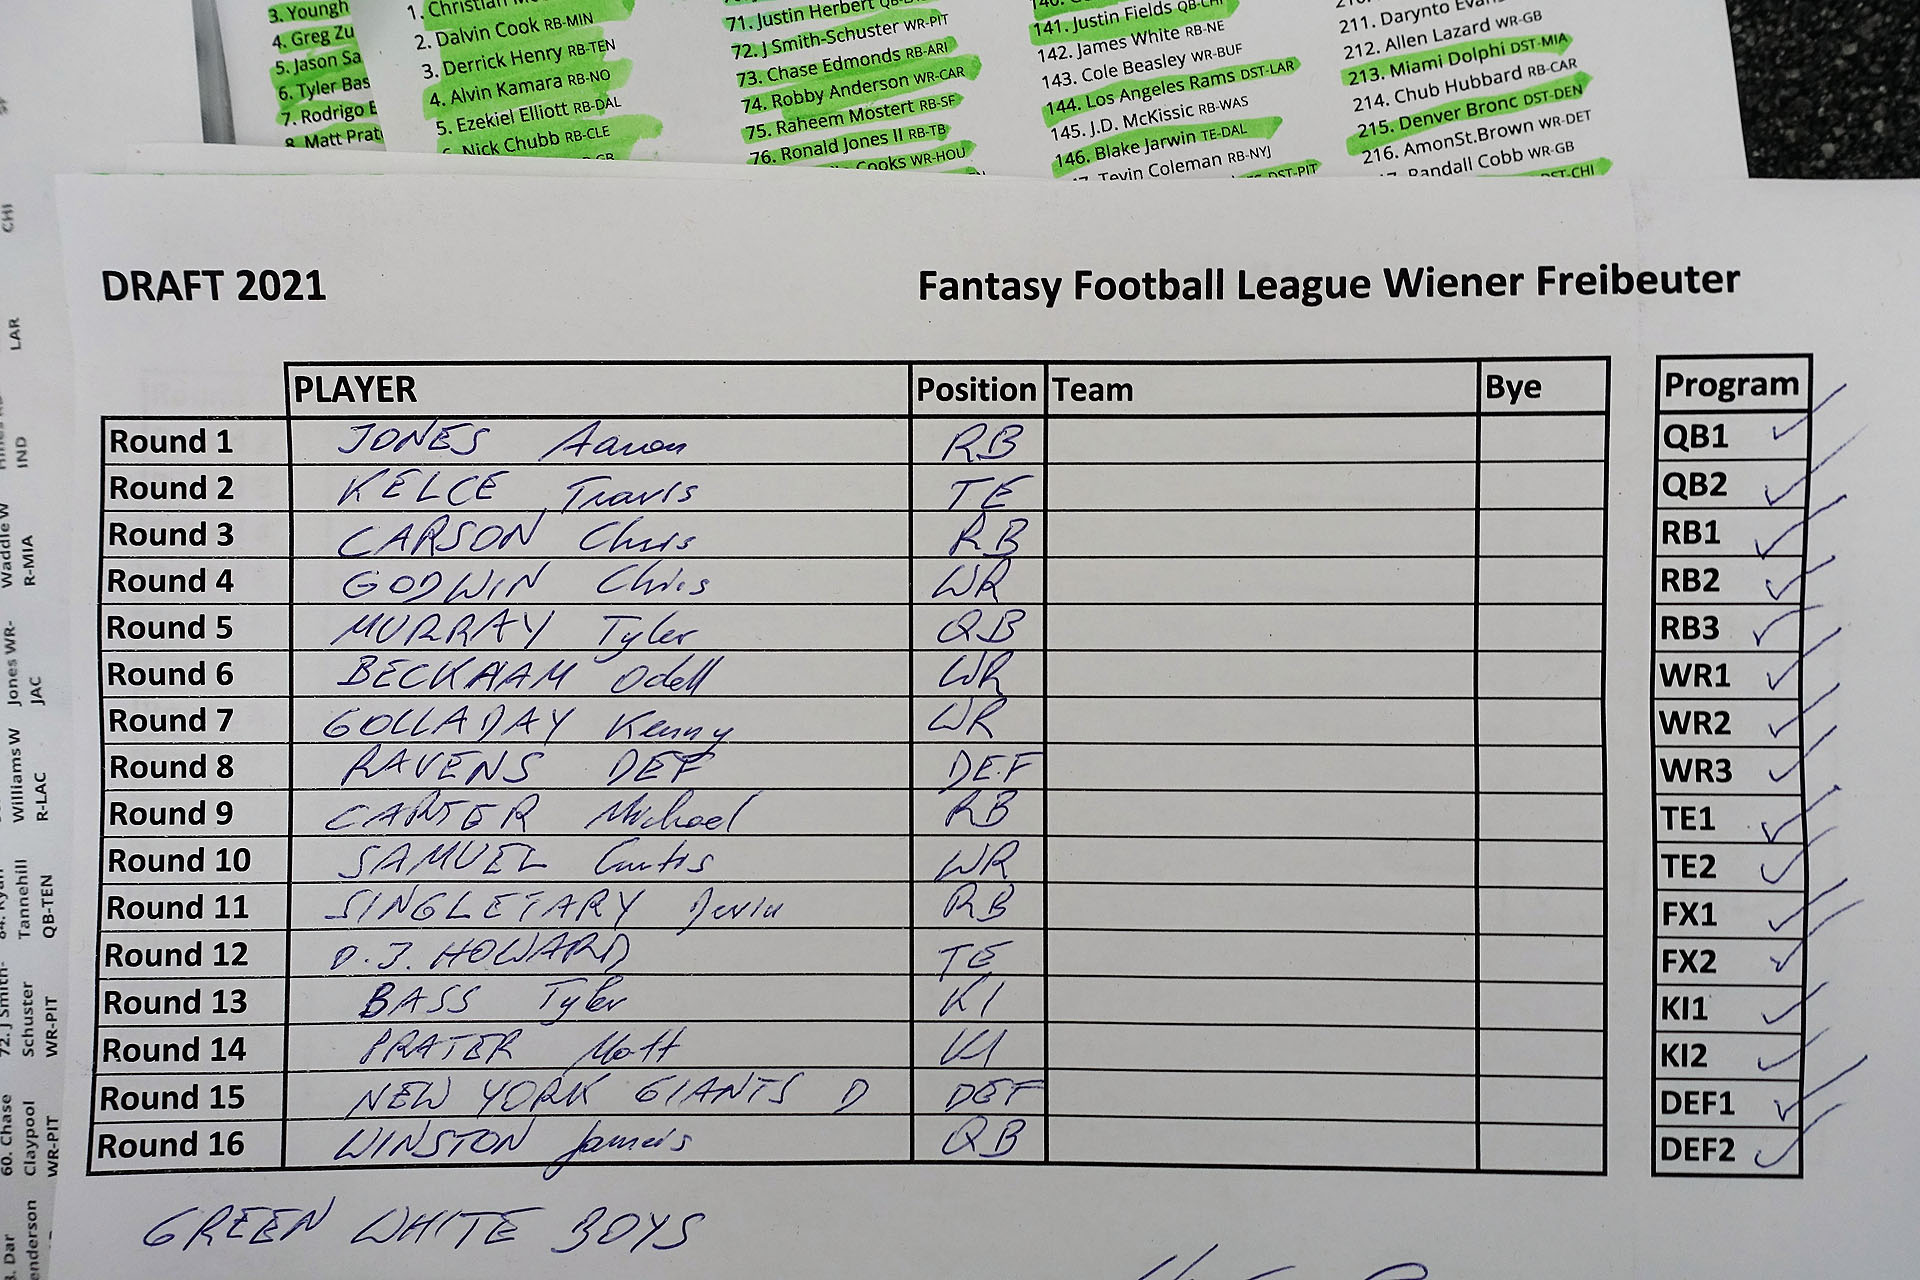 3. Youngh
4. Greg Zu
5. Jason Sa
6. Tyler Bas
7. Rodrigo B
8. Matt Prat
1. Christian
2. Dalvin Cook RB-MIN
3. Derrick Henry RB-TEN
4. Alvin Kamara RB-NO
5. Ezekiel Elliott RB-DAL
Nick Chubb RB-CLE
71. Justin Herbert
72. J Smith-Schuster WR-PIT
73. Chase Edmonds RB-ARI
74. Robby Anderson WR-CAR
75. Raheem Mostert RB-SF
76. Ronald Jones II RB-TB
Cooks WR-HOU
141. Justin Fields QB-CHI
142. James White RB-NE
143. Cole Beasley WR-BUF
144. Los Angeles Rams DST-LAR
145. J.D. McKissic RB-WAS
146. Blake Jarwin TE-DAL
Tevin Coleman RB-NYJ
DST-PIT
211. Darynto Evans
212. Allen Lazard WR-GB
213. Miami Dolphi DST-MIA
214. Chub Hubbard RB-CAR
215. Denver Bronc DST-DEN
216. AmonSt.Brown WR-DET
Randall Cobb WR-GB
DST-CHI
CHI
LAR
IND
Waddle W
R-MIA
Jones WR-
JAC
Williams W
R-LAC
Tannehill
QB-TEN
72. J Smith-
Schuster
WR-PIT
60. Chase
Claypool
WR-PIT
Dar
enderson
DRAFT 2021 Fantasy Football League Wiener Freibeuter
PLAYER Position Team Bye Program
Round 1 JONES Aaron RB QB1 ✓
Round 2 KELCE Travis TE QB2 ✓
Round 3 CARSON Chris RB RB1 ✓
Round 4 GODWIN Chris WR RB2 ✓
Round 5 MURRAY Tyler QB RB3 ✓
Round 6 BECKHAM Odell WR WR1 ✓
Round 7 GOLLADAY Kenny WR WR2 ✓
Round 8 RAVENS DEF DEF WR3 ✓
Round 9 CARTER Michael RB TE1 ✓
Round 10 SAMUEL Curtis WR TE2 ✓
Round 11 SINGLETARY Devin RB FX1 ✓
Round 12 O.J. HOWARD TE FX2 ✓
Round 13 BASS Tyler KI KI1 ✓
Round 14 PRATER Matt KI KI2 ✓
Round 15 NEW YORK GIANTS D DEF DEF1 ✓
Round 16 WINSTON Jameis QB DEF2 ✓
GREEN WHITE BOYS